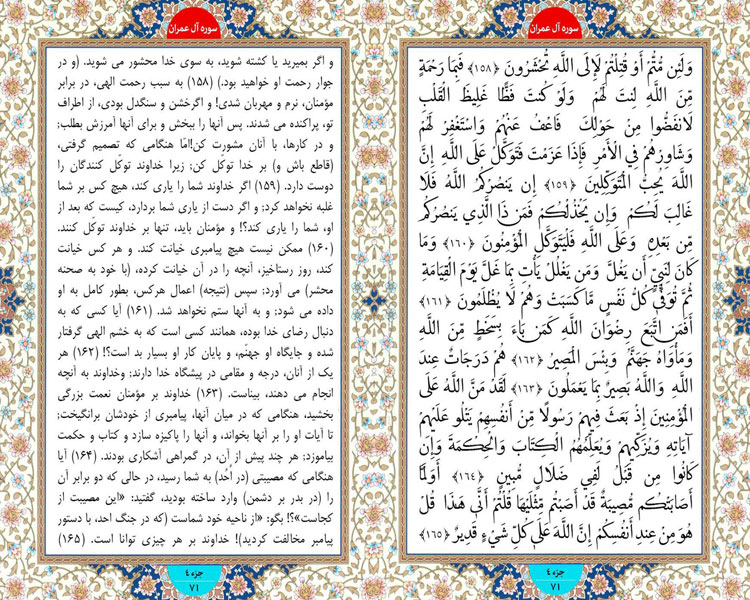 سوره آل عمران
وَلَئِن مُّتُّمْ أَوْ قُتِلْتُمْ لَإِلَى اللَّهِ تُحْشَرُونَ ﴿۱۵۸﴾ فَبِمَا رَحْمَةٍ
مِّنَ اللَّهِ لِنتَ لَهُمْ وَلَوْ كُنتَ فَظًّا غَلِيظَ الْقَلْبِ
لَانفَضُّوا مِنْ حَوْلِكَ فَاعْفُ عَنْهُمْ وَاسْتَغْفِرْ لَهُمْ
وَشَاوِرْهُمْ فِي الْأَمْرِ فَإِذَا عَزَمْتَ فَتَوَكَّلْ عَلَى اللَّهِ إِنَّ
اللَّهَ يُحِبُّ الْمُتَوَكِّلِينَ ﴿۱۵۹﴾ إِن يَنصُرْكُمُ اللَّهُ فَلَا
غَالِبَ لَكُمْ وَإِن يَخْذُلْكُمْ فَمَن ذَا الَّذِي يَنصُرُكُم
مِّن بَعْدِهِ وَعَلَى اللَّهِ فَلْيَتَوَكَّلِ الْمُؤْمِنُونَ ﴿۱۶۰﴾ وَمَا
كَانَ لِنَبِيٍّ أَن يَغُلَّ وَمَن يَغْلُلْ يَأْتِ بِمَا غَلَّ يَوْمَ الْقِيَامَةِ
ثُمَّ تُوَفَّىٰ كُلُّ نَفْسٍ مَّا كَسَبَتْ وَهُمْ لَا يُظْلَمُونَ ﴿۱۶۱﴾
أَفَمَنِ اتَّبَعَ رِضْوَانَ اللَّهِ كَمَن بَاءَ بِسَخَطٍ مِّنَ اللَّهِ
وَمَأْوَاهُ جَهَنَّمُ وَبِئْسَ الْمَصِيرُ ﴿۱۶۲﴾ هُمْ دَرَجَاتٌ عِندَ
اللَّهِ وَاللَّهُ بَصِيرٌ بِمَا يَعْمَلُونَ ﴿۱۶۳﴾ لَقَدْ مَنَّ اللَّهُ عَلَى
الْمُؤْمِنِينَ إِذْ بَعَثَ فِيهِمْ رَسُولًا مِّنْ أَنفُسِهِمْ يَتْلُو عَلَيْهِمْ
آيَاتِهِ وَيُزَكِّيهِمْ وَيُعَلِّمُهُمُ الْكِتَابَ وَالْحِكْمَةَ وَإِن
كَانُوا مِن قَبْلُ لَفِي ضَلَالٍ مُّبِينٍ ﴿۱۶۴﴾ أَوَلَمَّا
أَصَابَتْكُم مُّصِيبَةٌ قَدْ أَصَبْتُم مِّثْلَيْهَا قُلْتُمْ أَنَّىٰ هَٰذَا قُلْ
هُوَ مِنْ عِندِ أَنفُسِكُمْ إِنَّ اللَّهَ عَلَىٰ كُلِّ شَيْءٍ قَدِيرٌ ﴿۱۶۵﴾
جزء ٤
۷۱
سوره آل عمران
و اگر بمیرید یا کشته شوید، به سوی خدا محشور می شوید. (و در
جوار رحمت او خواهید بود.) (۱۵۸) به سبب رحمت الهی، در برابر
مؤمنان، نرم و مهربان شدی! و اگرخشن و سنگدل بودی، از اطراف
تو، پراکنده می شدند. پس آنها را ببخش و برای آنها آمرزش بطلب؛
و در کارها، با آنان مشورت کن!امّا هنگامی که تصمیم گرفتی،
(قاطع باش و) بر خدا توکّل کن؛ زیرا خداوند توکّل کنندگان را
دوست دارد. (۱۵۹) اگر خداوند شما را یاری کند، هیچ کس بر شما
غلبه نخواهد کرد; و اگر دست از یاری شما بردارد، کیست که بعد از
او، شما را یاری کند؟! و مؤمنان باید، تنها بر خداوند توکّل کنند.
(۱۶۰) ممکن نیست هیچ پیامبری خیانت کند. و هر کس خیانت
کند، روز رستاخیز، آنچه را در آن خیانت کرده، (با خود به صحنه
محشر) می آورد; سپس (نتیجه) اعمال هرکس، بطور کامل به او
داده می شود; و به آنها ستم نخواهد شد. (۱۶۱) آیا کسی که به
دنبال رضای خدا بوده، همانند کسی است که به خشم الهی گرفتار
شده و جایگاه او جهنّم، و پایان کار او بسیار بد است؟! (۱۶۲) هر
یک از آنان، درجه و مقامی در پیشگاه خدا دارند; وخداوند به آنچه
انجام می دهند، بیناست. (۱۶۳) خداوند بر مؤمنان نعمت بزرگی
بخشید، هنگامی که در میان آنها، پیامبری از خودشان برانگیخت;
تا آیات او را بر آنها بخواند، و آنها را پاکیزه سازد و کتاب و حکمت
بیاموزد; هر چند پیش از آن، در گمراهی آشکاری بودند. (۱۶۴) آیا
هنگامی که مصیبتی (در اُحُد) به شما رسید، در حالی که دو برابر آن
را (در بدر بر دشمن) وارد ساخته بودید، گفتید: «این مصیبت از
کجاست»؟! بگو: «از ناحیه خود شماست (که در جنگ احد، با دستور
پیامبر مخالفت کردید)! خداوند بر هر چیزی توانا است. (۱۶۵)
جزء ٤
۷۱